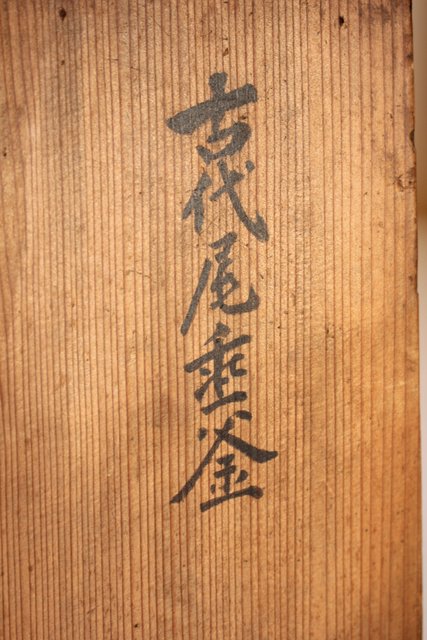 古代尾垂釜